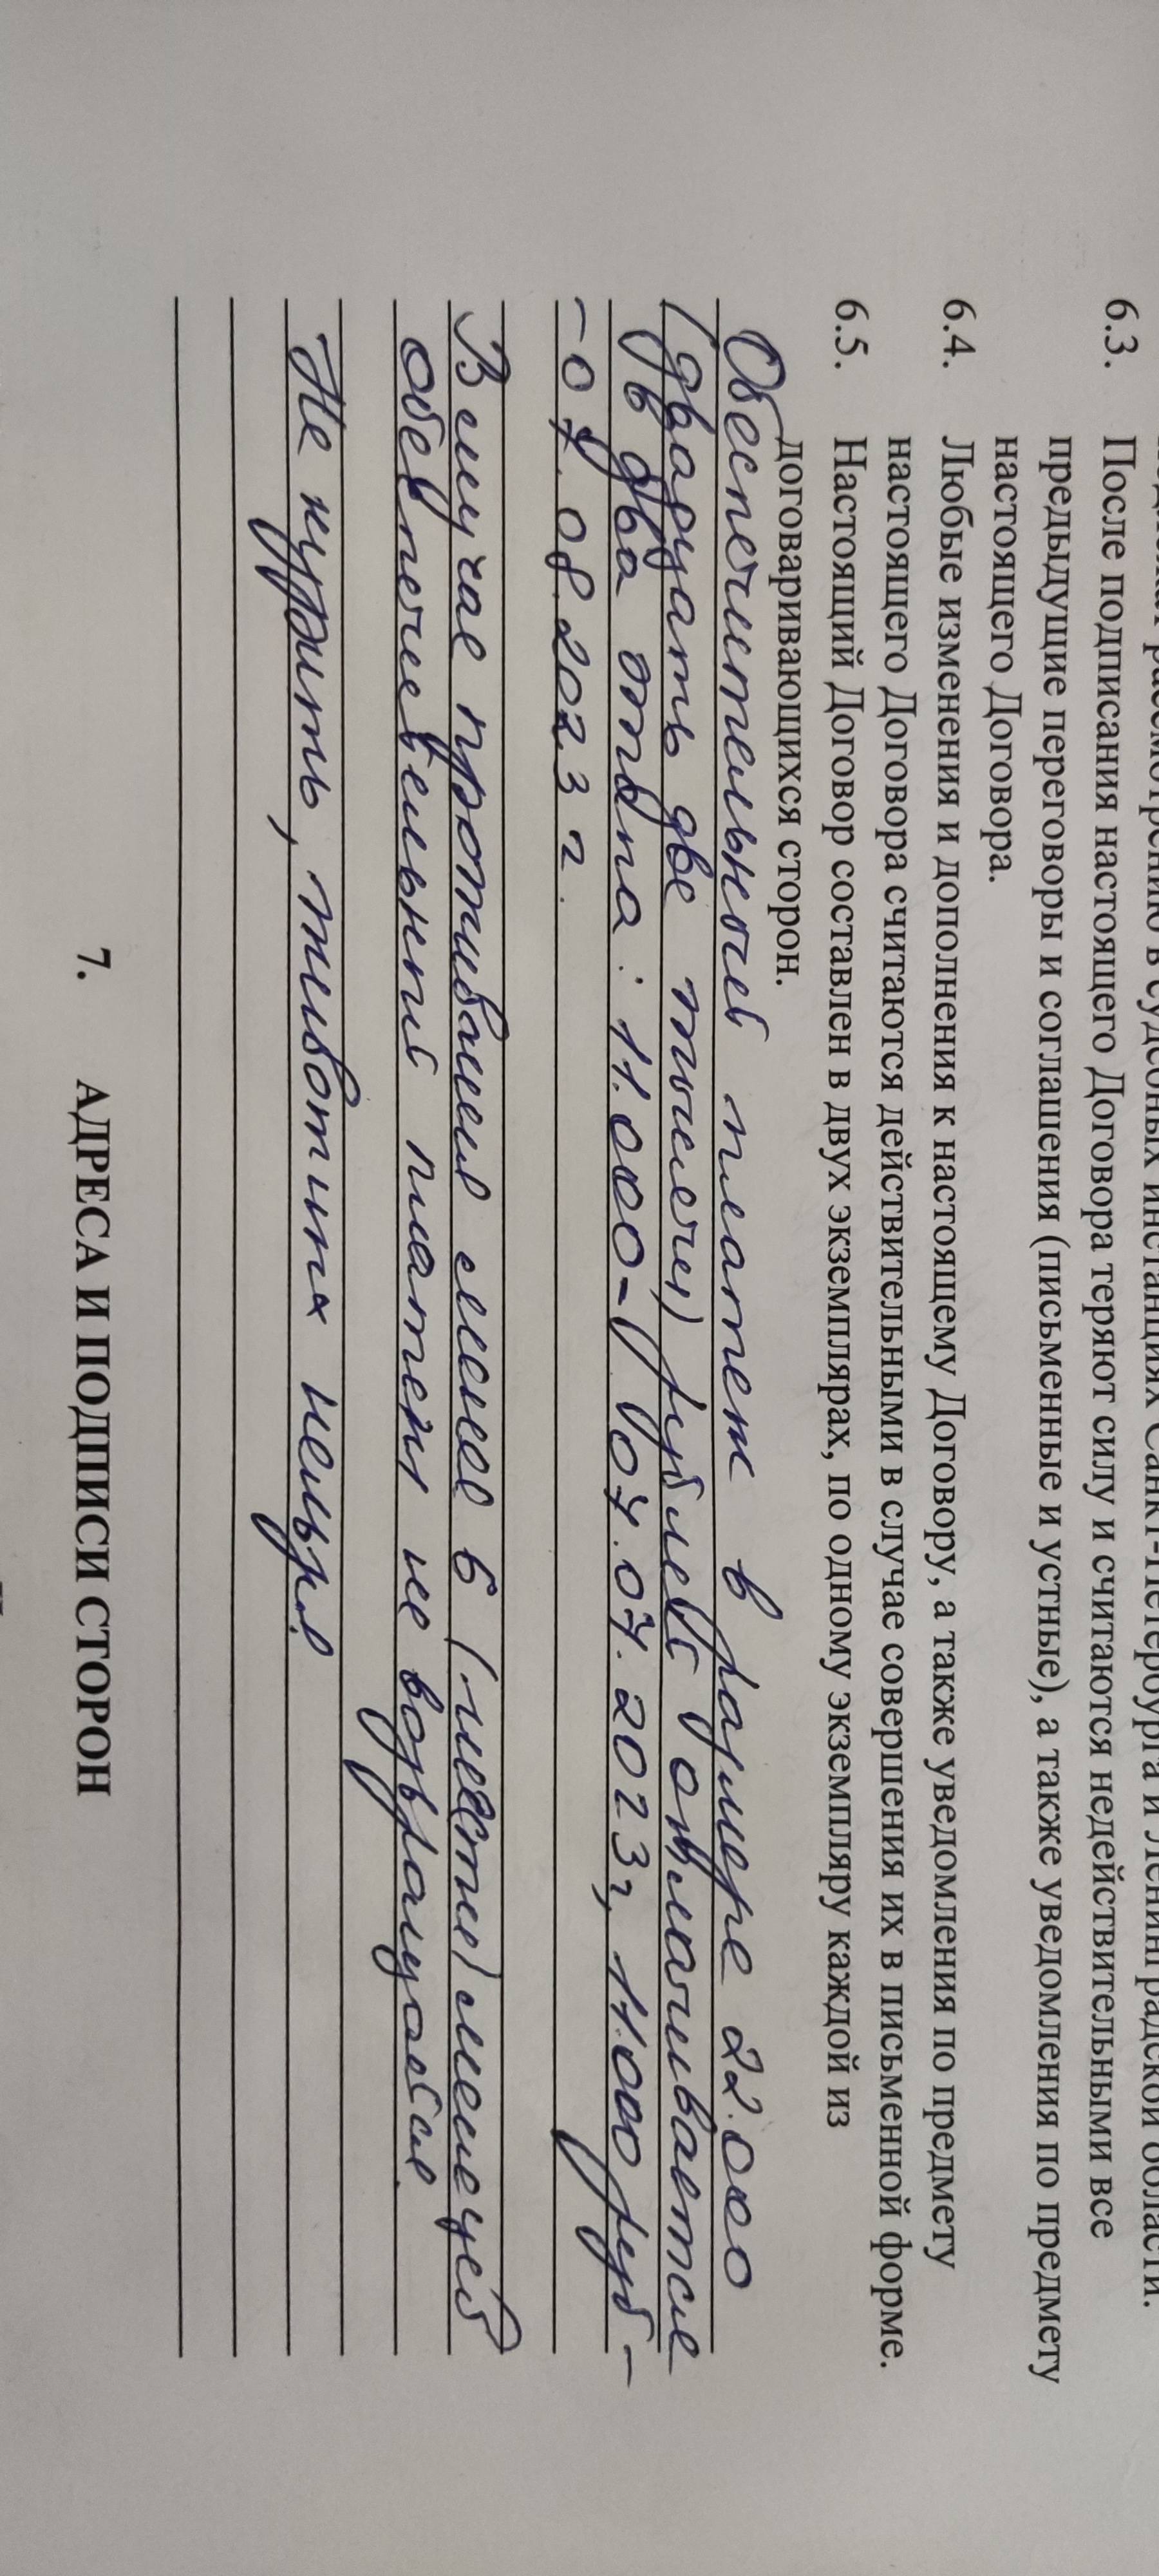 рассмотрению в судебных инстанциях Санкт-Петербурга и Ленинградской области.
6.3. После подписания настоящего Договора теряют силу и считаются недействительными все
предыдущие переговоры и соглашения (письменные и устные), а также уведомления по предмету
настоящего Договора.
6.4. Любые изменения и дополнения к настоящему Договору, а также уведомления по предмету
настоящего Договора считаются действительными в случае совершения их в письменной форме.
6.5. Настоящий Договор составлен в двух экземплярах, по одному экземпляру каждой из
договаривающихся сторон.
Обеспечительный платеж в размере 22.000
(двадцать две тысячи) рублей оплачивается
в два этапа: 11.000-(07.07.2023г, 11.000 руб -
- 07.08.2023 г.
В случае проживания менее 6 (шести) месяцев
обеспечительный платеж не возвращается.
Не курить, животных нельзя
7. АДРЕСА И ПОДПИСИ СТОРОН